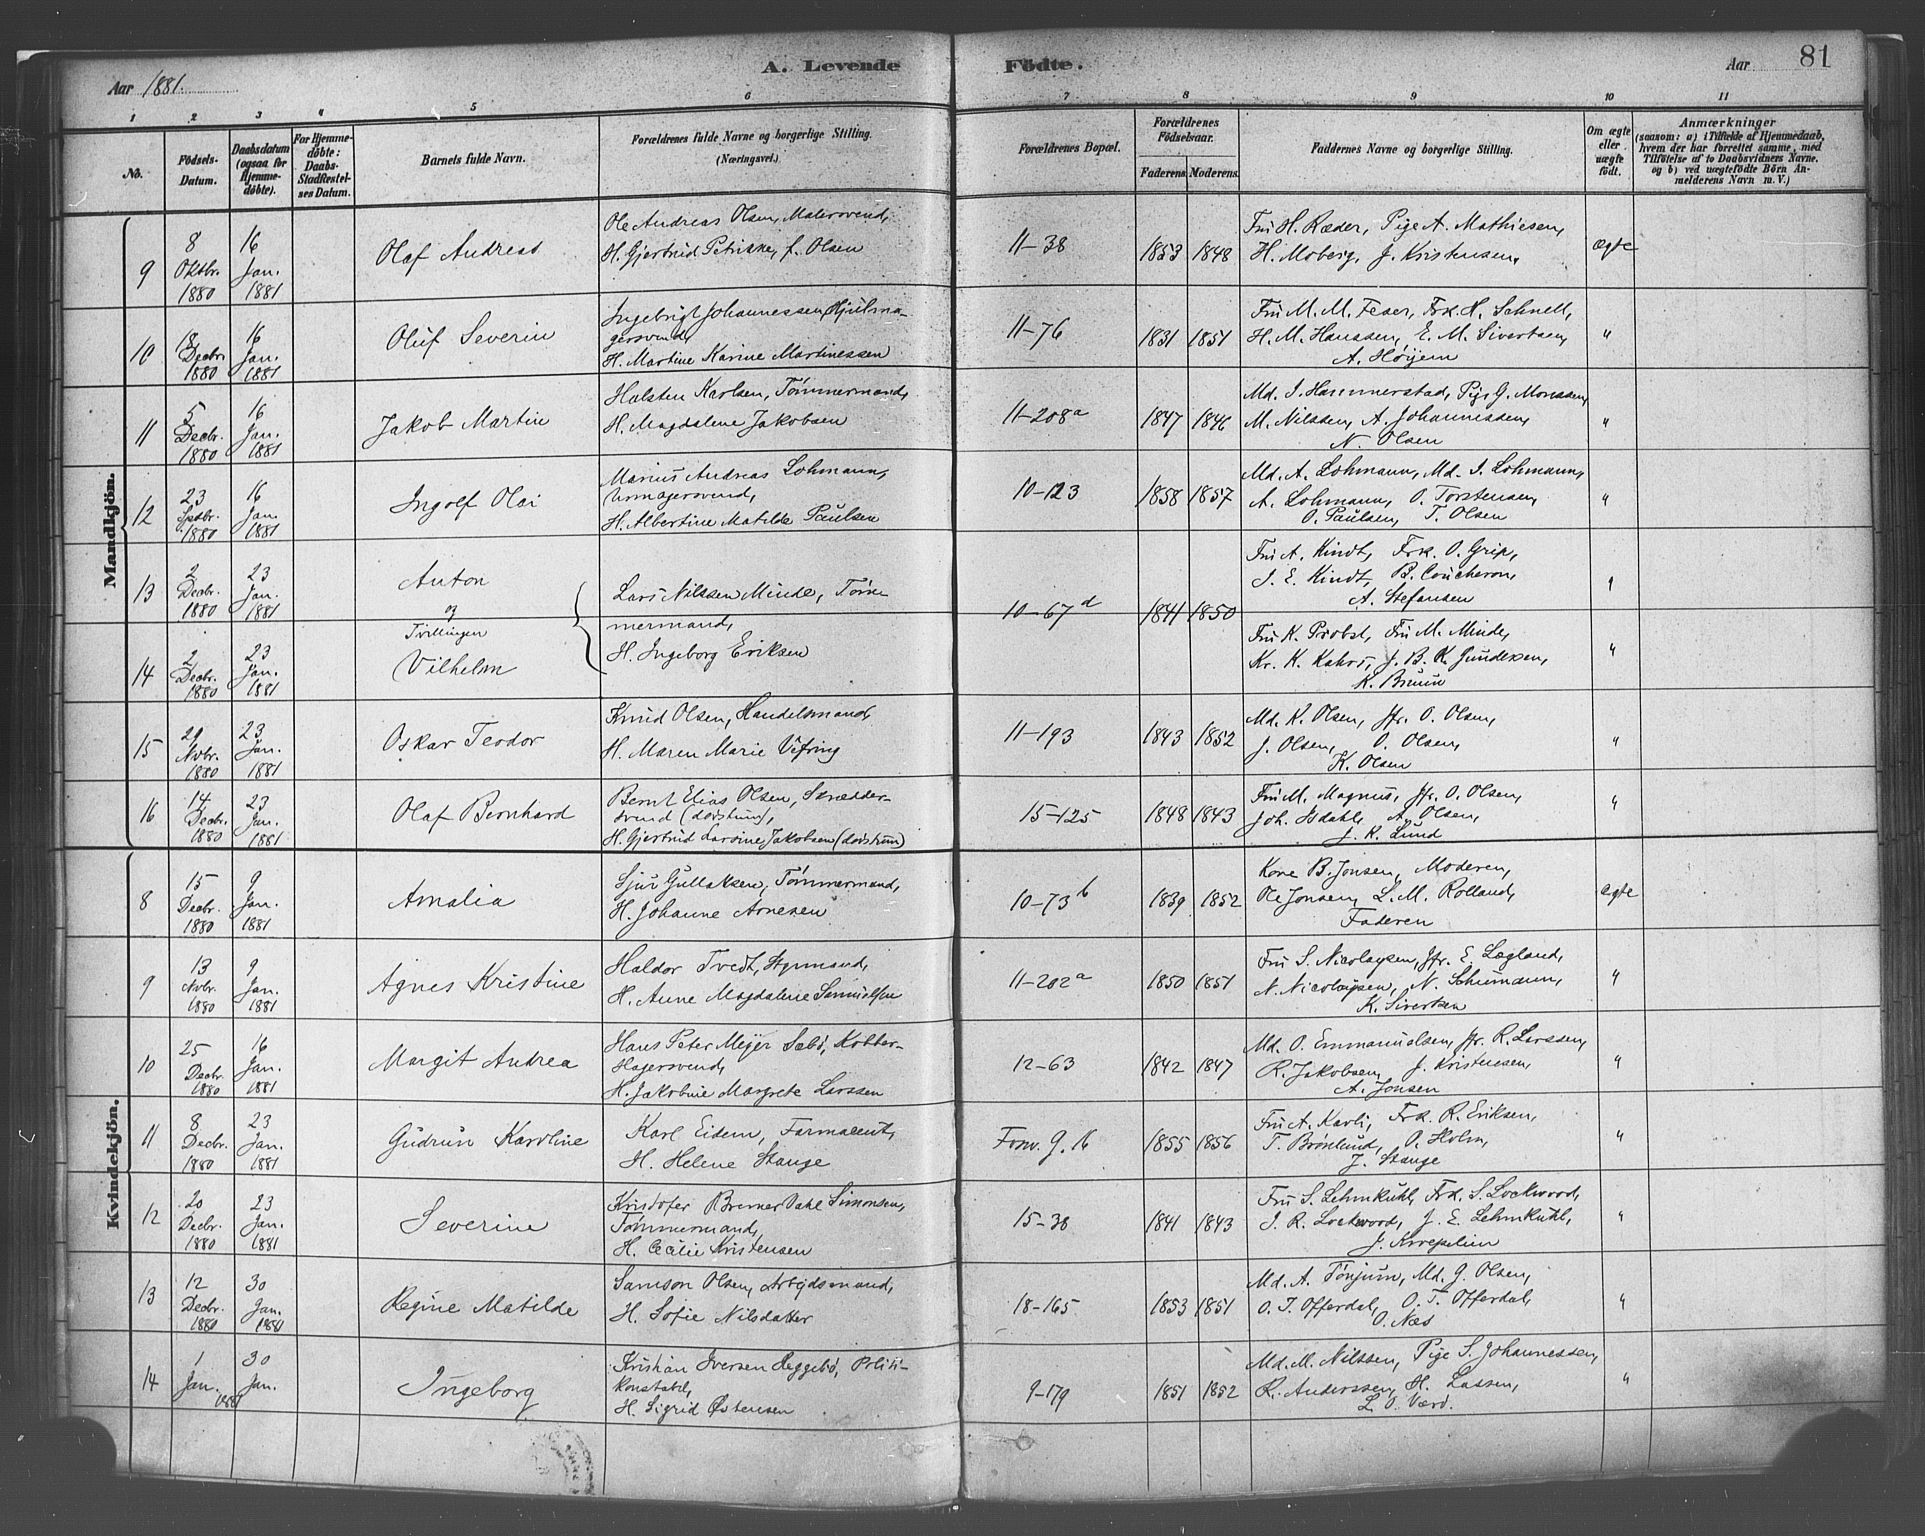 Aar 1881.
A. Levende Födte.
Aar
81
1 2 3 4 5 6 7 8 9 10 11
No.
Födsels-Datum.
Daabsdatum (ogsaa for Hjemmedøbte).
For Hjemmedøbte: Daabs Stadfæstelses Datum.
Barnets fulde Navn.
Forældrenes fulde Navne og borgerlige Stilling. (Næringsvei.)
Forældrenes Bopæl.
Forældrenes Födselsaar.
Faderens Moderens
Faddernes Navne og borgerlige Stilling.
Om ægte eller uægte født.
Anmærkninger
(saasom: a) i Tilfælde af Hjemmedaab, hvem der har forrettet samme, med Tilføielse af to Daabsvidners Navne, og b) ved uægtefødte Børn Anmelderens Navn m. V.)
Mandkjön.
9 8 Oktbr. 1880 16 Jan. 1881 Olaf Andreas
Ole Andreas Olsen, Malersvend,
H. Gjertrud Petrikke, f. Olsen
11-38 1853 1848
Fru H. Ræder, Pige A. Mathiesen,
H. Moberg, J. Kristensen,
ægte
10 18 Decbr. 1880 16 Jan. 1881 Oluf Severin
Ingebrigt Johannessen, Hjulma-
gersvend,
H. Martine Karine Martinessen
11-76 1831 1851
Fru M. M. Feser, Frk. H. Schnell,
H. M. Hanssen, E. M. Sivertsen,
A. Höyem
"
11 5 Decbr. 1880 16 Jan. 1881 Jakob Martin
Halsten Karlsen, Tömmermand,
H. Magdalene Jakobsen
11-208a 1847 1846
Md. J. Hammerstad, Pige G. Monssen,
M. Nilssen, A. Johannessen,
N. Olsen
"
12 23 Sptbr. 1880 16 Jan. 1881 Ingolf Olai
Marius Andreas Lohmann,
Urmagersvend,
H. Albertine Matilde Paulsen
10-123 1858 1857
Md. A. Lohmann, Md. J. Lohmann,
A. Lohmann, O. Torstensen,
O. Paulsen, T. Olsen
"
13 2 Decbr. 1880 23 Jan. 1881 Anton
og
Tvillingen
14 2 Decbr. 1880 23 Jan. 1881 Vilhelm
Lars Nilssen Minde, Töm-
mermand,
H. Ingeborg Eriksen
10-67d 1841 1850
Fru A. Kindt, Frk. O. Grip,
J. E. Kindt, B. Coucheron,
A. Stefansen
"
Fru K. Probst, Fru M. Minde,
Kr. K. Kahrs, J. B. K. Gundersen,
K. Bruun
"
15 29 Nvbr. 1880 23 Jan. 1881 Oskar Teodor
Knud Olsen, Handelsmand,
H. Maren Marie Vefring
11-193 1843 1852
Md. K. Olsen, Jfr. O. Olsen,
J. Olsen, O. Olsen,
K. Olsen
"
16 14 Decbr. 1880 23 Jan. 1881 Olaf Bernhard
Bernt Elias Olsen, Skrædder-
svend (dovstum),
H. Gjertrud Larsine Jakobsen (dovstum)
15-125 1848 1843
Fru M. Magnus, Jfr. O. Olsen,
Joh. Isdahl, A. Olsen,
J. K. Lund
"
Kvindekjön.
8 15 Decbr. 1880 9 Jan. 1881 Amalia
Sjur Gullaksen, Tömmermand,
H. Johanne Arnesen
10-73b 1839 1852
Kone B. Jonsen, Moderen,
Ole Jonsen, L. M. Rolland,
Faderen
ægte
9 13 Nvbr. 1880 9 Jan. 1881 Agnes Kristine
Haldor Tvedt, Styrmand,
H. Anne Magdalene Samuelsen
11-202a 1850 1851
Fru S. Nicolaysen, Jfr. E. Lægland,
N. Nicolaysen, N. Schumann,
K. Sivertsen
"
10 25 Decbr. 1880 16 Jan. 1881 Margit Andrea
Hans Peter Meyer Sæbö, Kobber-
slagersvend,
H. Jakobine Margrete Larssen
12-63 1842 1847
Md. O. Emmanuelsen, Jfr. R. Larssen,
R. Jakobsen, J. Kristensen,
A. Jonsen
"
11 8 Decbr. 1880 23 Jan. 1881 Gudrun Karoline
Karl Eidem, Farmaceut,
H. Helene Stange
Forv. G. 16 1855 1856
Fru A. Kavli, Frk. R. Eriksen,
T. Brönlund, O. Holm,
J. Stange
"
12 20 Decbr. 1880 23 Jan. 1881 Severine
Kristofer Bremer Dahl Simonsen,
Tömmermand,
H. Cecilie Kristensen
15-38 1841 1843
Fru S. Lehmkuhl, Frk. S. Lockwood,
J. R. Lockwood, J. E. Lehmkuhl,
J. Krepelien
"
13 12 Decbr. 1880 30 Jan. 1881 Regine Matilde
Samson Olsen, Arbejdsmand,
H. Sofie Nilsdatter
18-165 1853 1851
Md. A. Tönjum, Md. G. Olsen,
O. T. Offerdal, O. T. Offerdal,
O. Næs
"
14 1 Jan. 1881 30 Jan. Ingeborg
Kristian Iversen Reggebö, Politi-
konstabel,
H. Sigrid Östensen
9-179 1851 1852
Md. M. Nilssen, Pige S. Johannessen,
R. Anderssen, H. Lassen,
L. O. Værö.
"